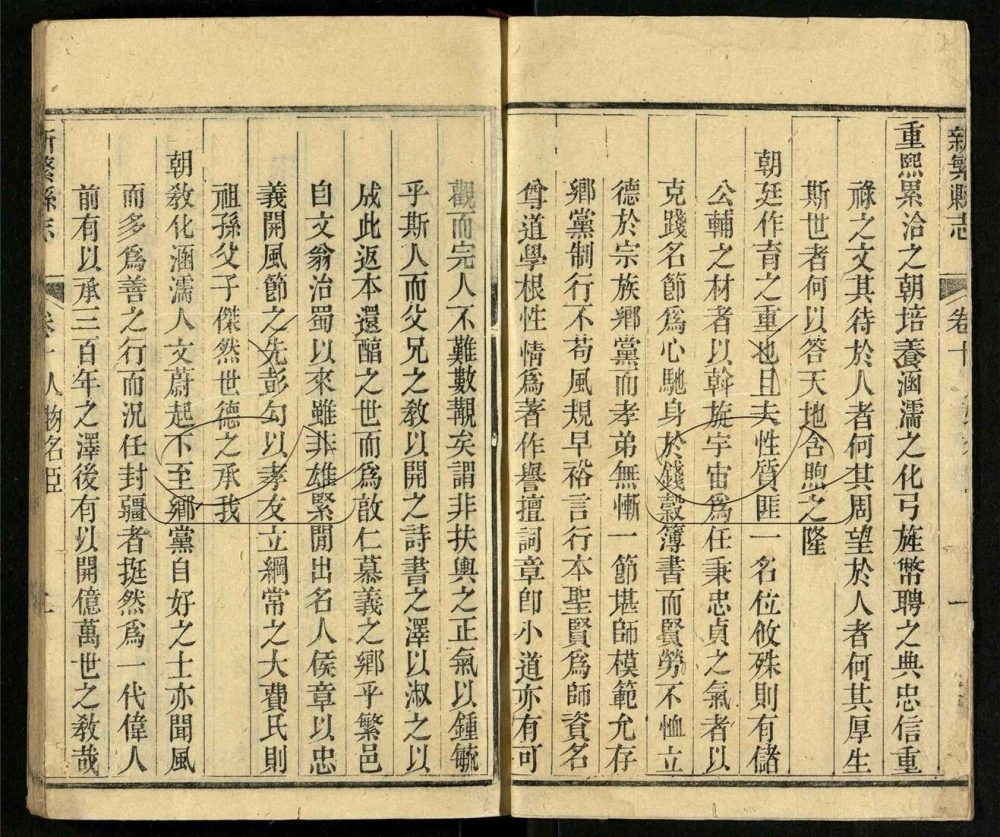 新繁縣志
卷十
一
重熙累洽之朝培養涵濡之化弓旌幣聘之典忠信重
祿之文其待於人者何其周望於人者何其厚生
斯世者何以答天地含煦之隆
朝廷作育之重也且夫性質匪一名位攸殊則有儲
公輔之材者以斡旋宇宙為任秉忠貞之氣者以
克踐名節為心馳身於錢穀簿書而賢勞不恤立
德於宗族鄉黨而孝弟無慚一節堪師模範允存
鄉黨制行不苟風規早裕言行本聖賢為師資名
尊道學根性情為著作譽擅詞章卽小道亦有可
觀而完人不難數覯矣謂非扶輿之正氣以鍾毓
乎斯人而父兄之教以開之詩書之澤以淑之以
成此返本還醕之世而為敦仁慕義之鄉乎繁邑
自文翁治蜀以來雖非雄緊閒出名人侯章以忠
義開風節之先彭勾以孝友立綱常之大費氏則
祖孫父子傑然世德之承我
朝敎化涵濡人文蔚起下至鄉黨自好之士亦聞風
而多為善之行而況任封疆者挺然為一代偉人
前有以承三百年之澤後有以開億萬世之敎哉
新繁縣志
卷十 人物名臣
二